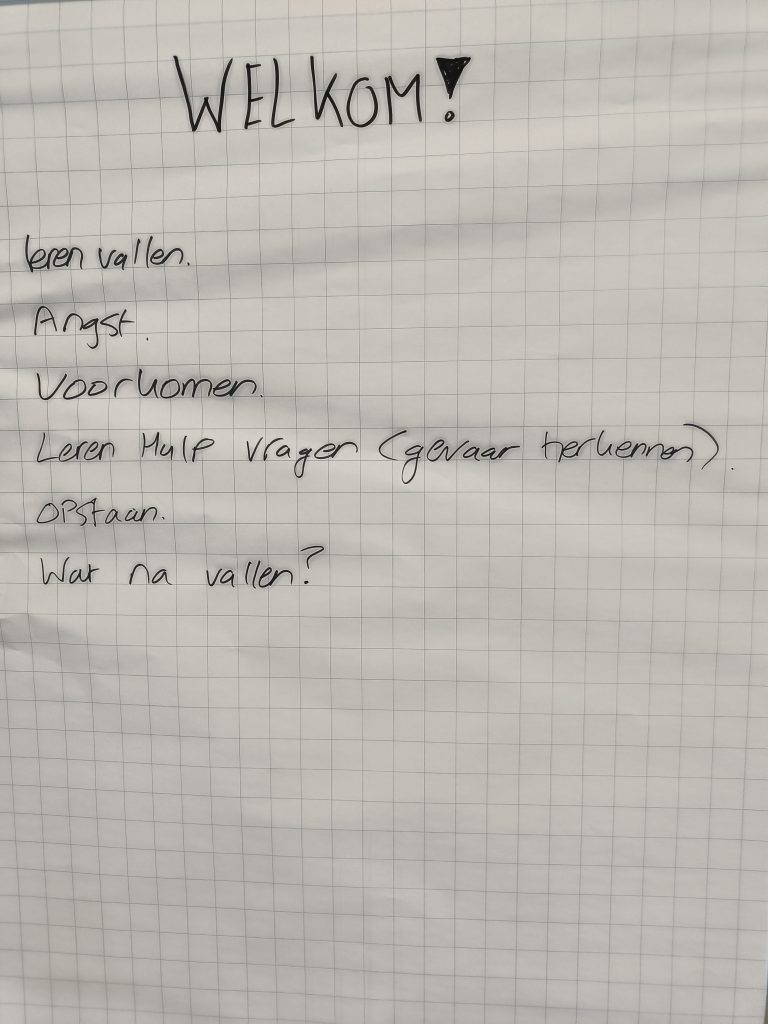 WELKOM!
leren vallen.
Angst.
Voorkomen.
Leren Hulp vragen (gevaar herkennen).
opstaan.
Wat na vallen?